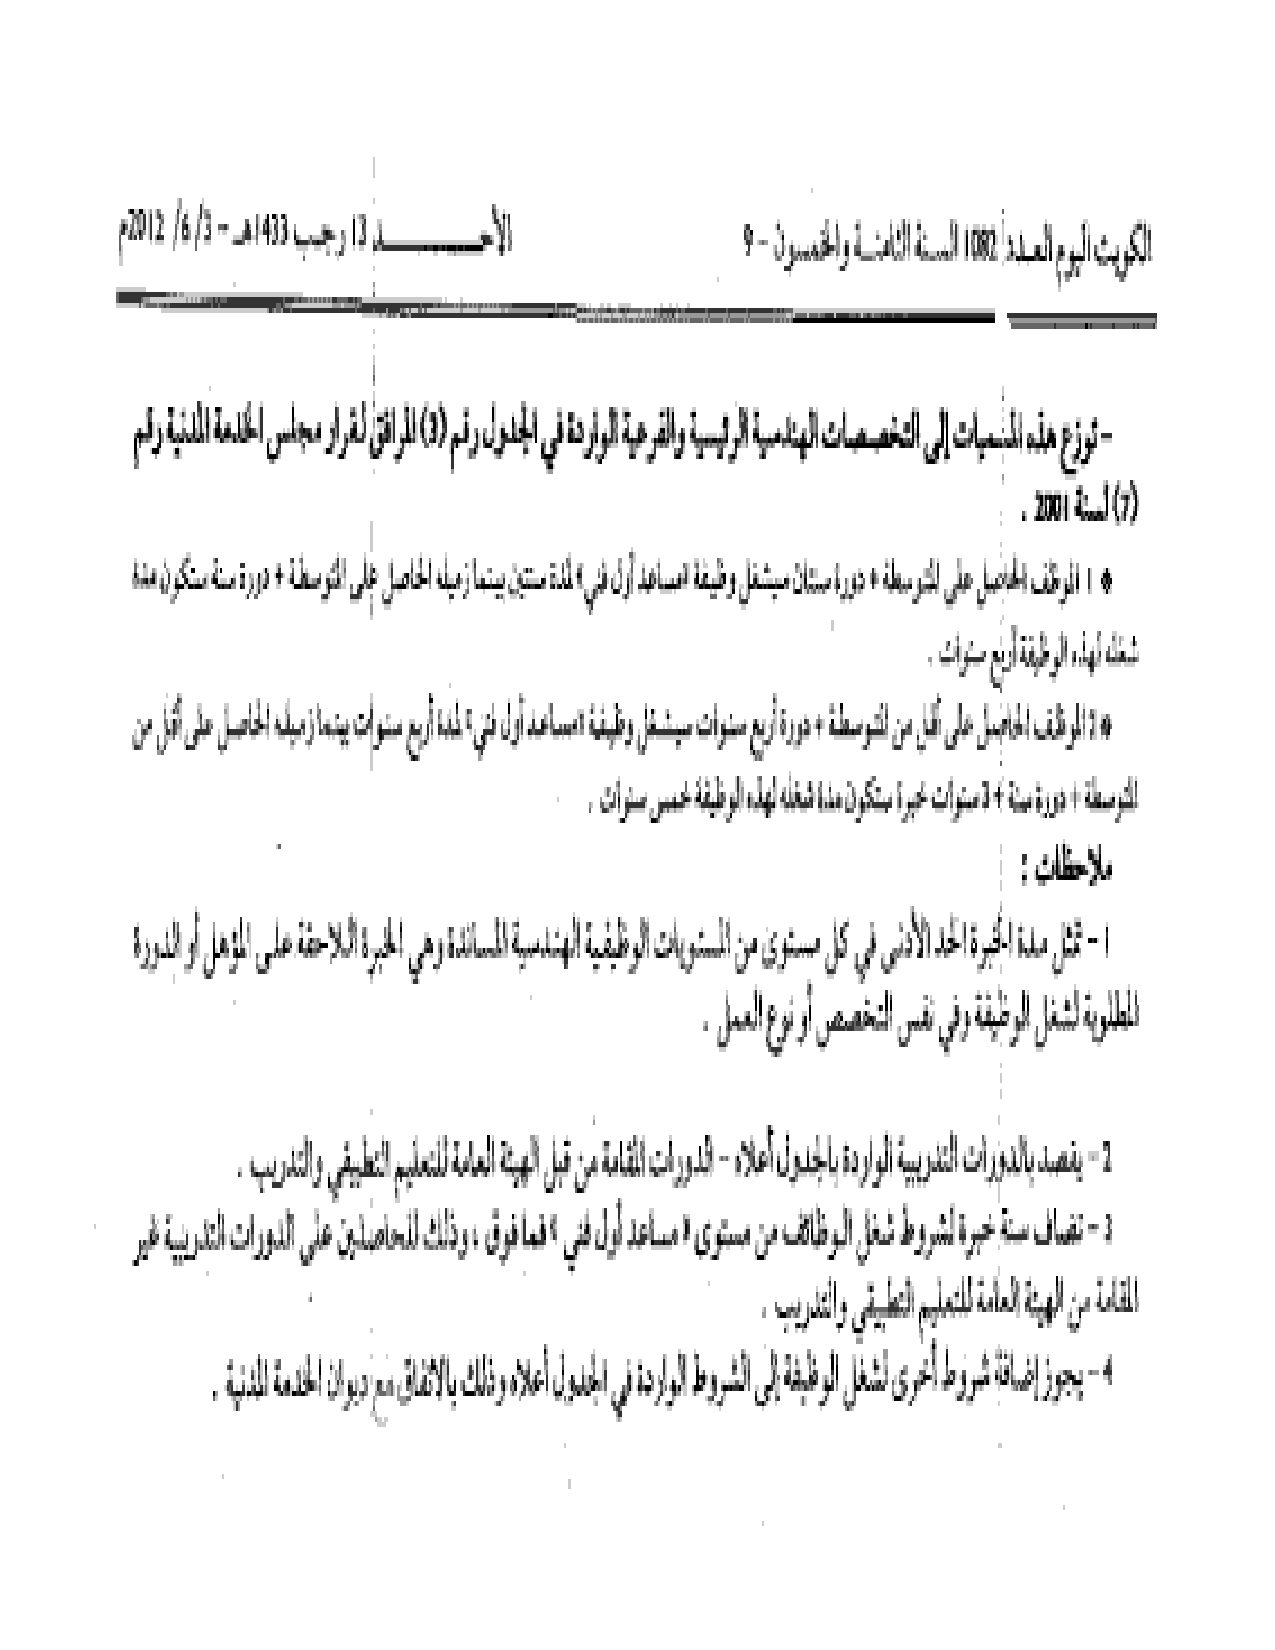 الكويت اليوم العدد 1082 السنة الثامنة والخمسون - 9
الأحـــــــــد 13 رجب 1433هـ - 3/ 6/ 2012م
- توزع هذه المسميات إلى التخصصات الهندسية الرئيسية والفرعية الواردة في الجدول رقم (3) المرافق لقرار مجلس الخدمة المدنية رقم
(7) لسنة 2001 .
* 1 الموظف الحاصل على المتوسطة + دورة سنتان سيشغل وظيفة «مساعد أول فني» لمدة سنتين بينما زميله الحاصل على المتوسطة + دورة سنة ستكون مدة
شغله لهذه الوظيفة أربع سنوات .
* 2 الموظف الحاصل على أقل من المتوسطة + دورة أربع سنوات سيشغل وظيفة «مساعد أول فني» لمدة أربع سنوات بينما زميله الحاصل على أقل من
المتوسطة + دورة سنة + 3 سنوات خبرة ستكون مدة شغله لهذه الوظيفة خمس سنوات .
ملاحظات :
1 - تمثل مدة الخبرة الحد الأدنى في كل مستوى من المستويات الوظيفية الهندسية المساندة وهي الخبرة اللاحقة على المؤهل أو الدورة
المطلوبة لشغل الوظيفة وفي نفس التخصص أو نوع العمل .
2 - يقصد بالدورات التدريبية الواردة بالجدول أعلاه - الدورات المقامة من قبل الهيئة العامة للتعليم التطبيقي والتدريب .
3 - تضاف سنة خبرة لشروط شغل الوظائف من مستوى « مساعد أول فني » فما فوق ، وذلك للحاصلين على الدورات التدريبية غير
المقامة من الهيئة العامة للتعليم التطبيقي والتدريب .
4 - يجوز إضافة شروط أخرى لشغل الوظيفة إلى الشروط الواردة في الجدول أعلاه وذلك بالاتفاق مع ديوان الخدمة المدنية .